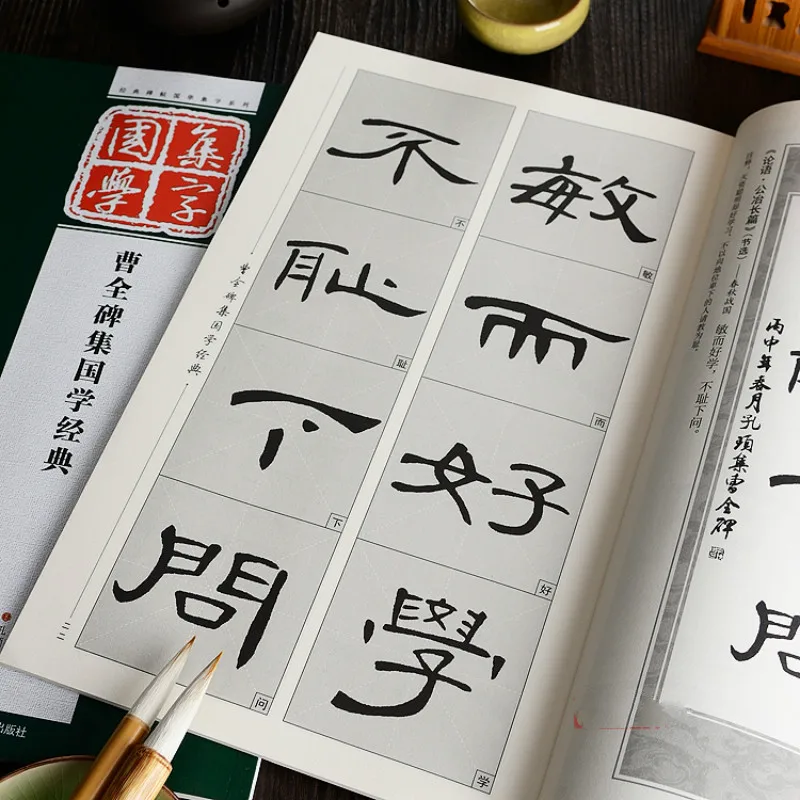 经典碑帖国学集字系列
集字
國學
曹全碑集国学经典
出版社
敏而好學
敏
而
好
学
不耻下問
不
耻
下
问
曹全碑集国学经典
二二
《论语·公冶长篇》(节选)
——春秋战国
敏而好学,不耻下问。
不以向地位卑下的人请教为耻。
丙申年春月孔 集曹全碑